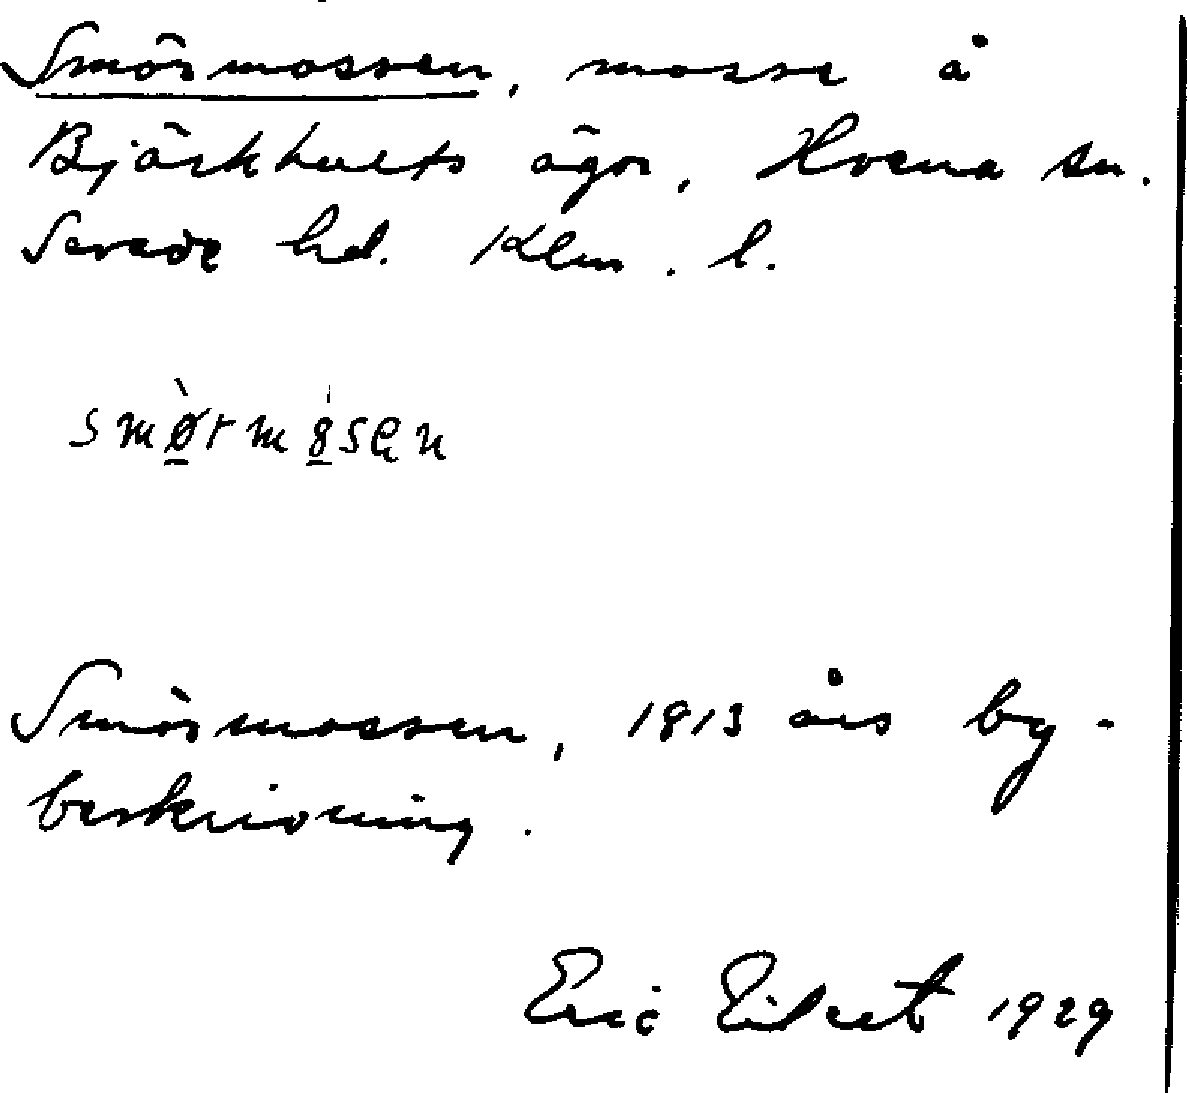 Smörmossen, mosse å
Björkhults ägor, Hvena sn.
Sevede hd. Klm. l.
smø̀rmósen
Smörmossen, 1813 års by-
beskrivning.
Eric 1929